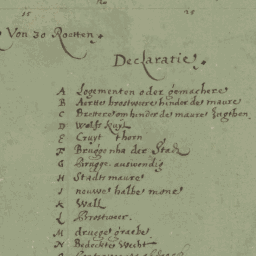 15 20 25
Von 30 Roetten.
Declaratie.
A Logementen oder gemachere
B Aerttes brostwere hinder de maure
C Brettere om hinder de maure
D Wolffs kuyl
E Cruyt thorn
F Brugge nha der Stadt
G Brugge auswendig
H Stadts maure
I nieuwe halbe mone
K Wall
L Brostweer.
M druege grabe
N Bedeckter Wecht
O